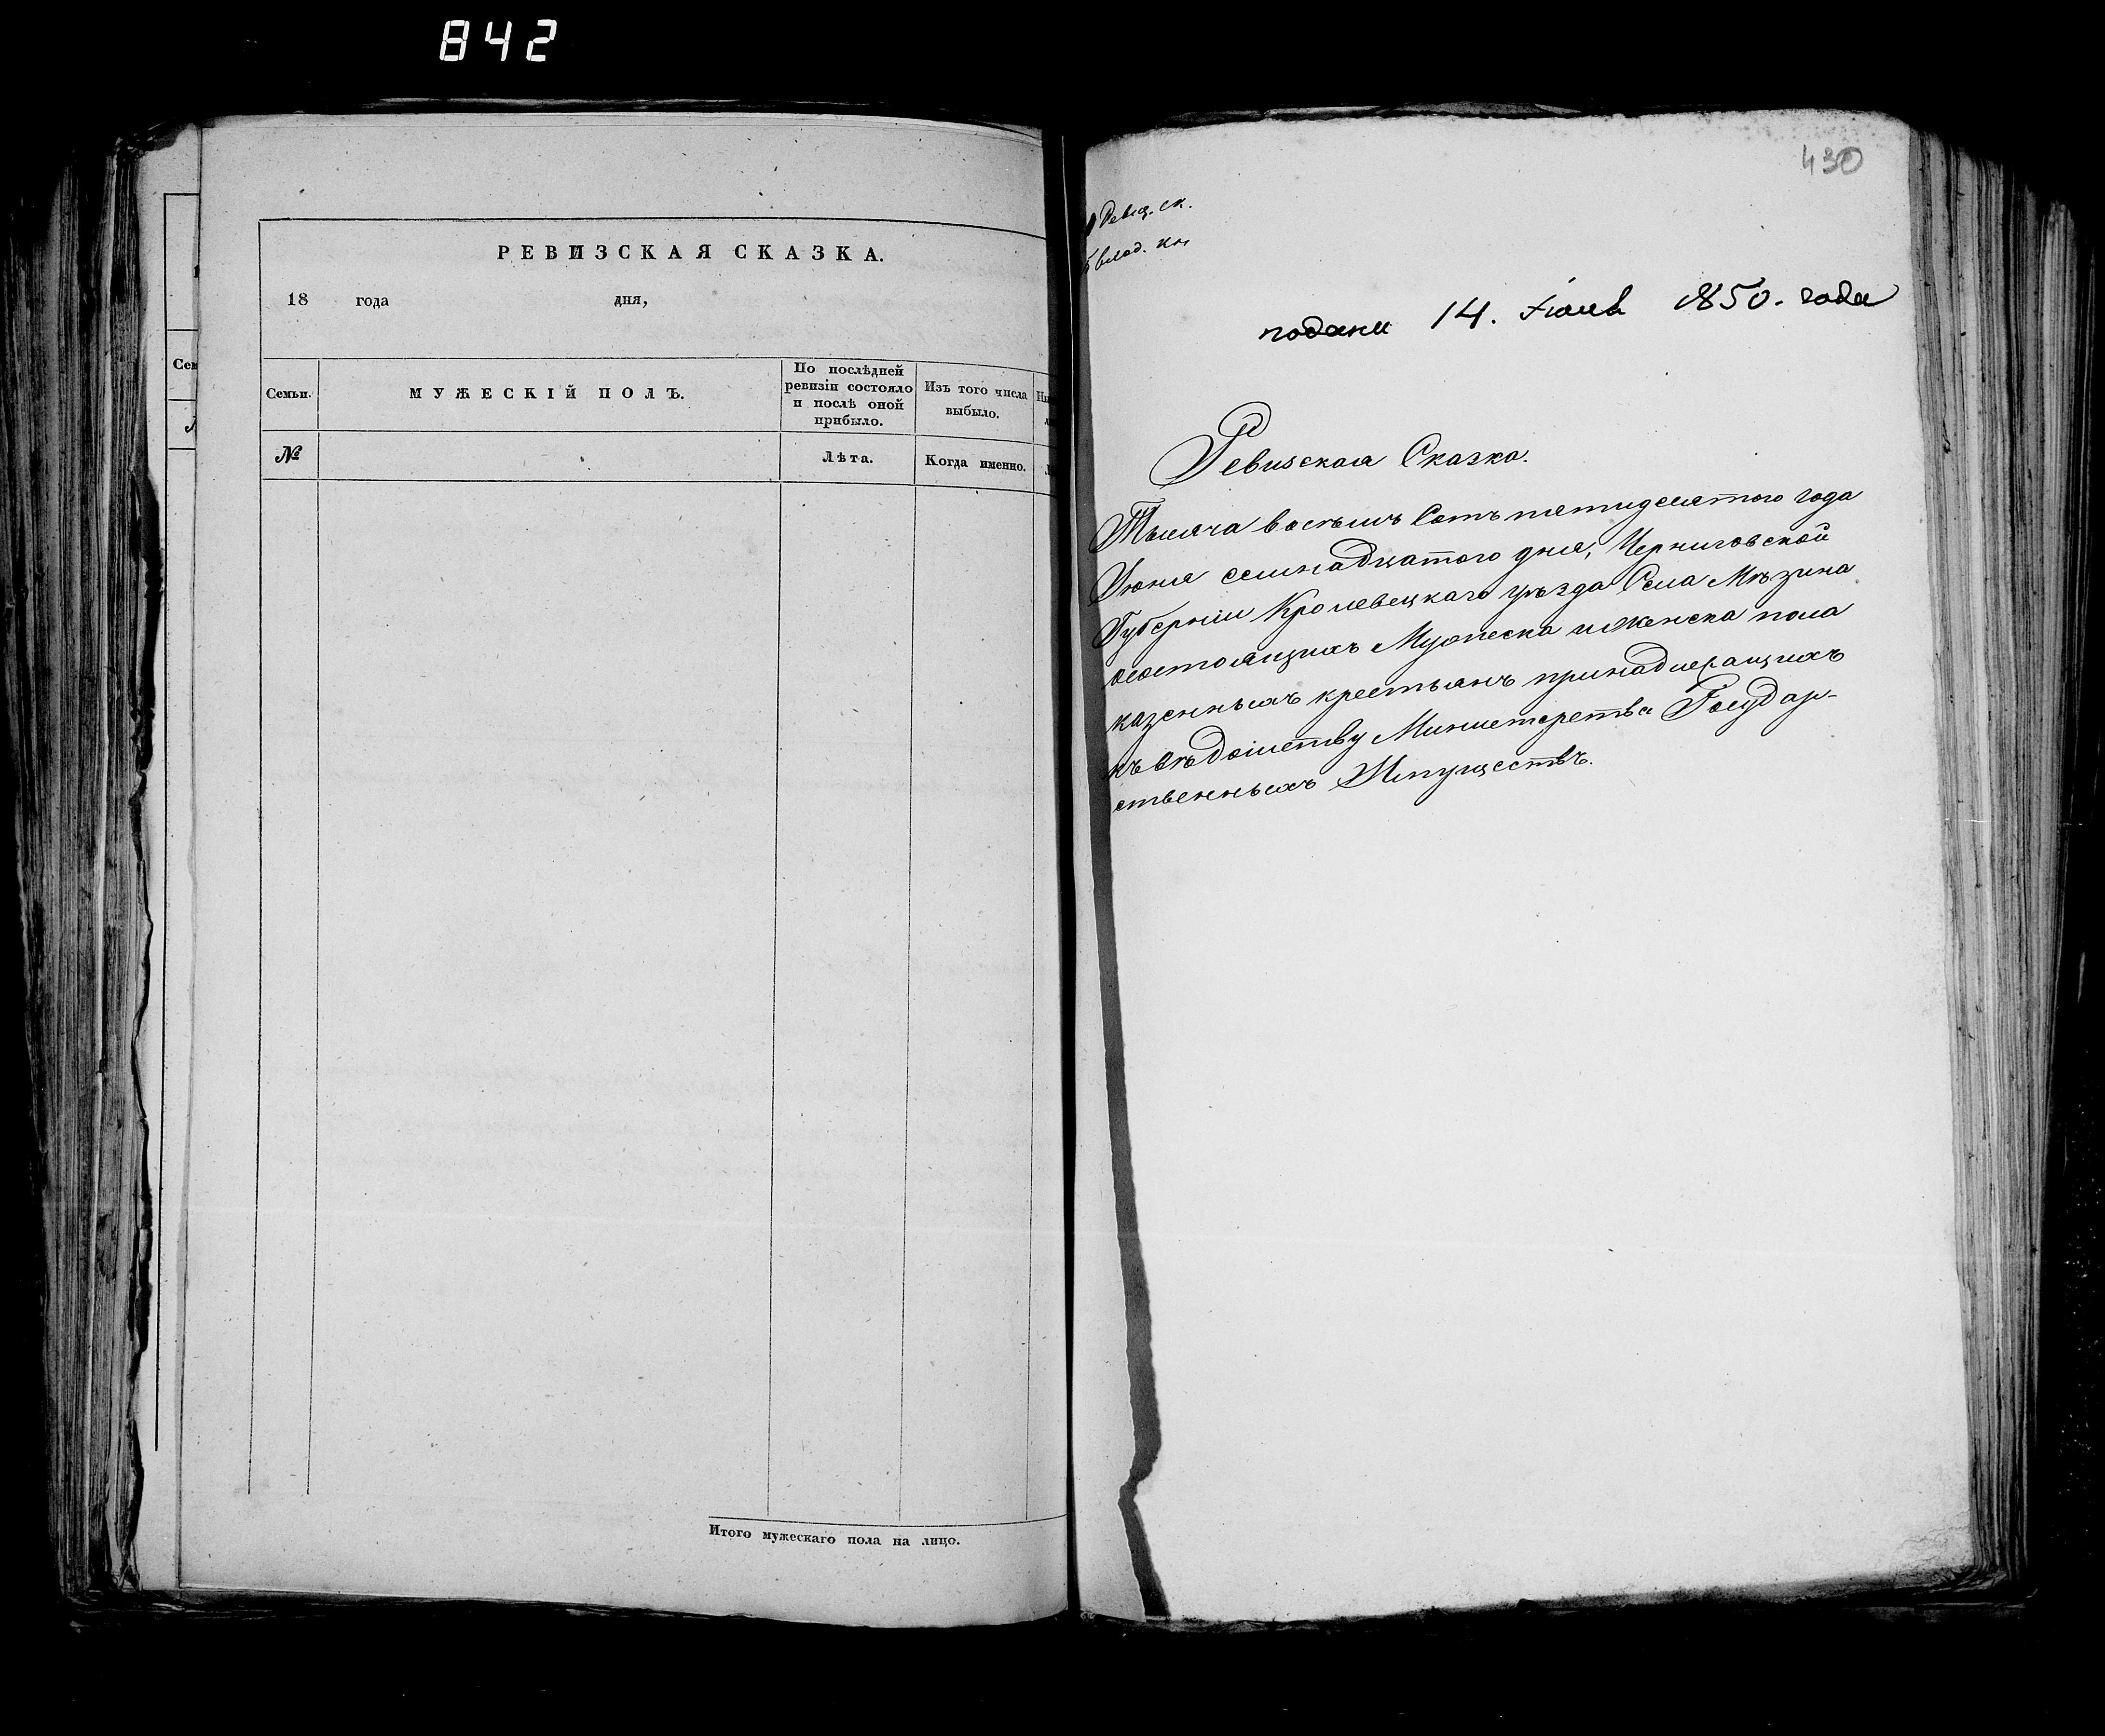 842
РЕВИЗСКАЯ СКАЗКА.
18 года дня,
Семьи.
МУЖЕСКІЙ ПОЛЪ.
По послѣдней
ревизіи состояло
и послѣ оной
прибыло.
Изъ того числа
выбыло.
№
Лѣта.
Когда именно.
Итого мужескаго пола на лицо.
430
Ревиз. ск.
подани 14. Іюля 1850. года
Ревизская Сказка.
Тысяча восѣмь Сотъ пятидесятого года
Іюня семнадцатого дня, Черниговской
Губерніи Кролевецкаго уѣзда Села Мѣзина
состоящихъ Мужеска и женска пола
казенныхъ крестьянъ принадлежащихъ
къ вѣдомству Министерства Государ-
ственныхъ Имуществъ.